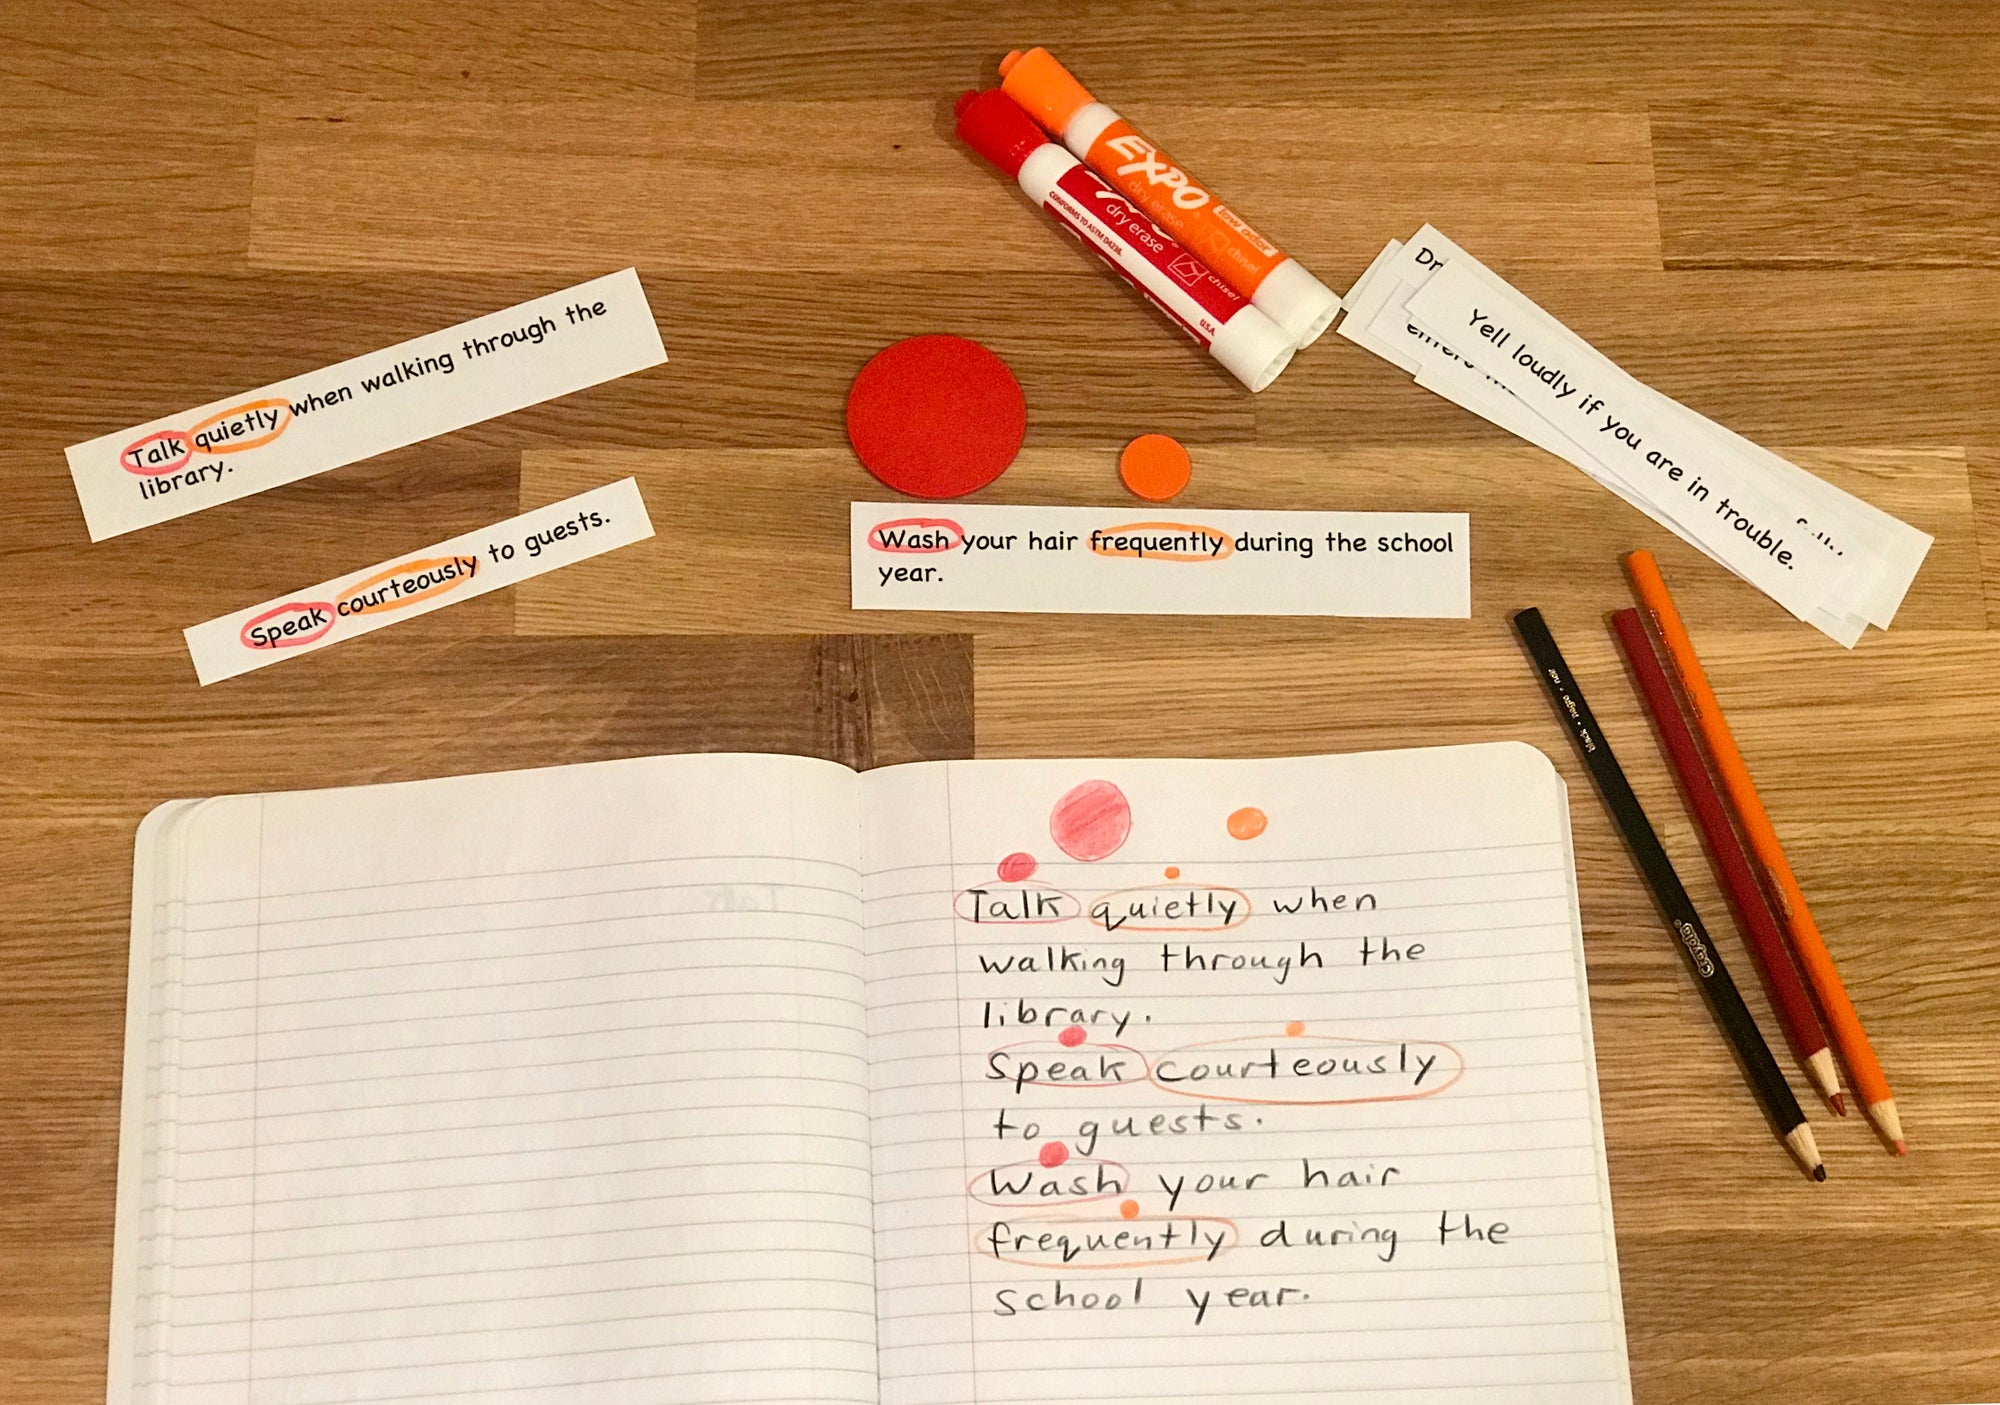 EXPO
dry erase
low odor
chisel
dry erase
chisel
CONFORMS TO ASTM D4236.
U.S.A.
Talk quietly when walking through the
library.
Speak courteously to guests.
Wash your hair frequently during the school
year.
Dr
Yell loudly if you are in trouble.
black • negro • noir
Crayola
Talk quietly when
walking through the
library.
Speak courteously
to guests.
Wash your hair
frequently during the
school year.